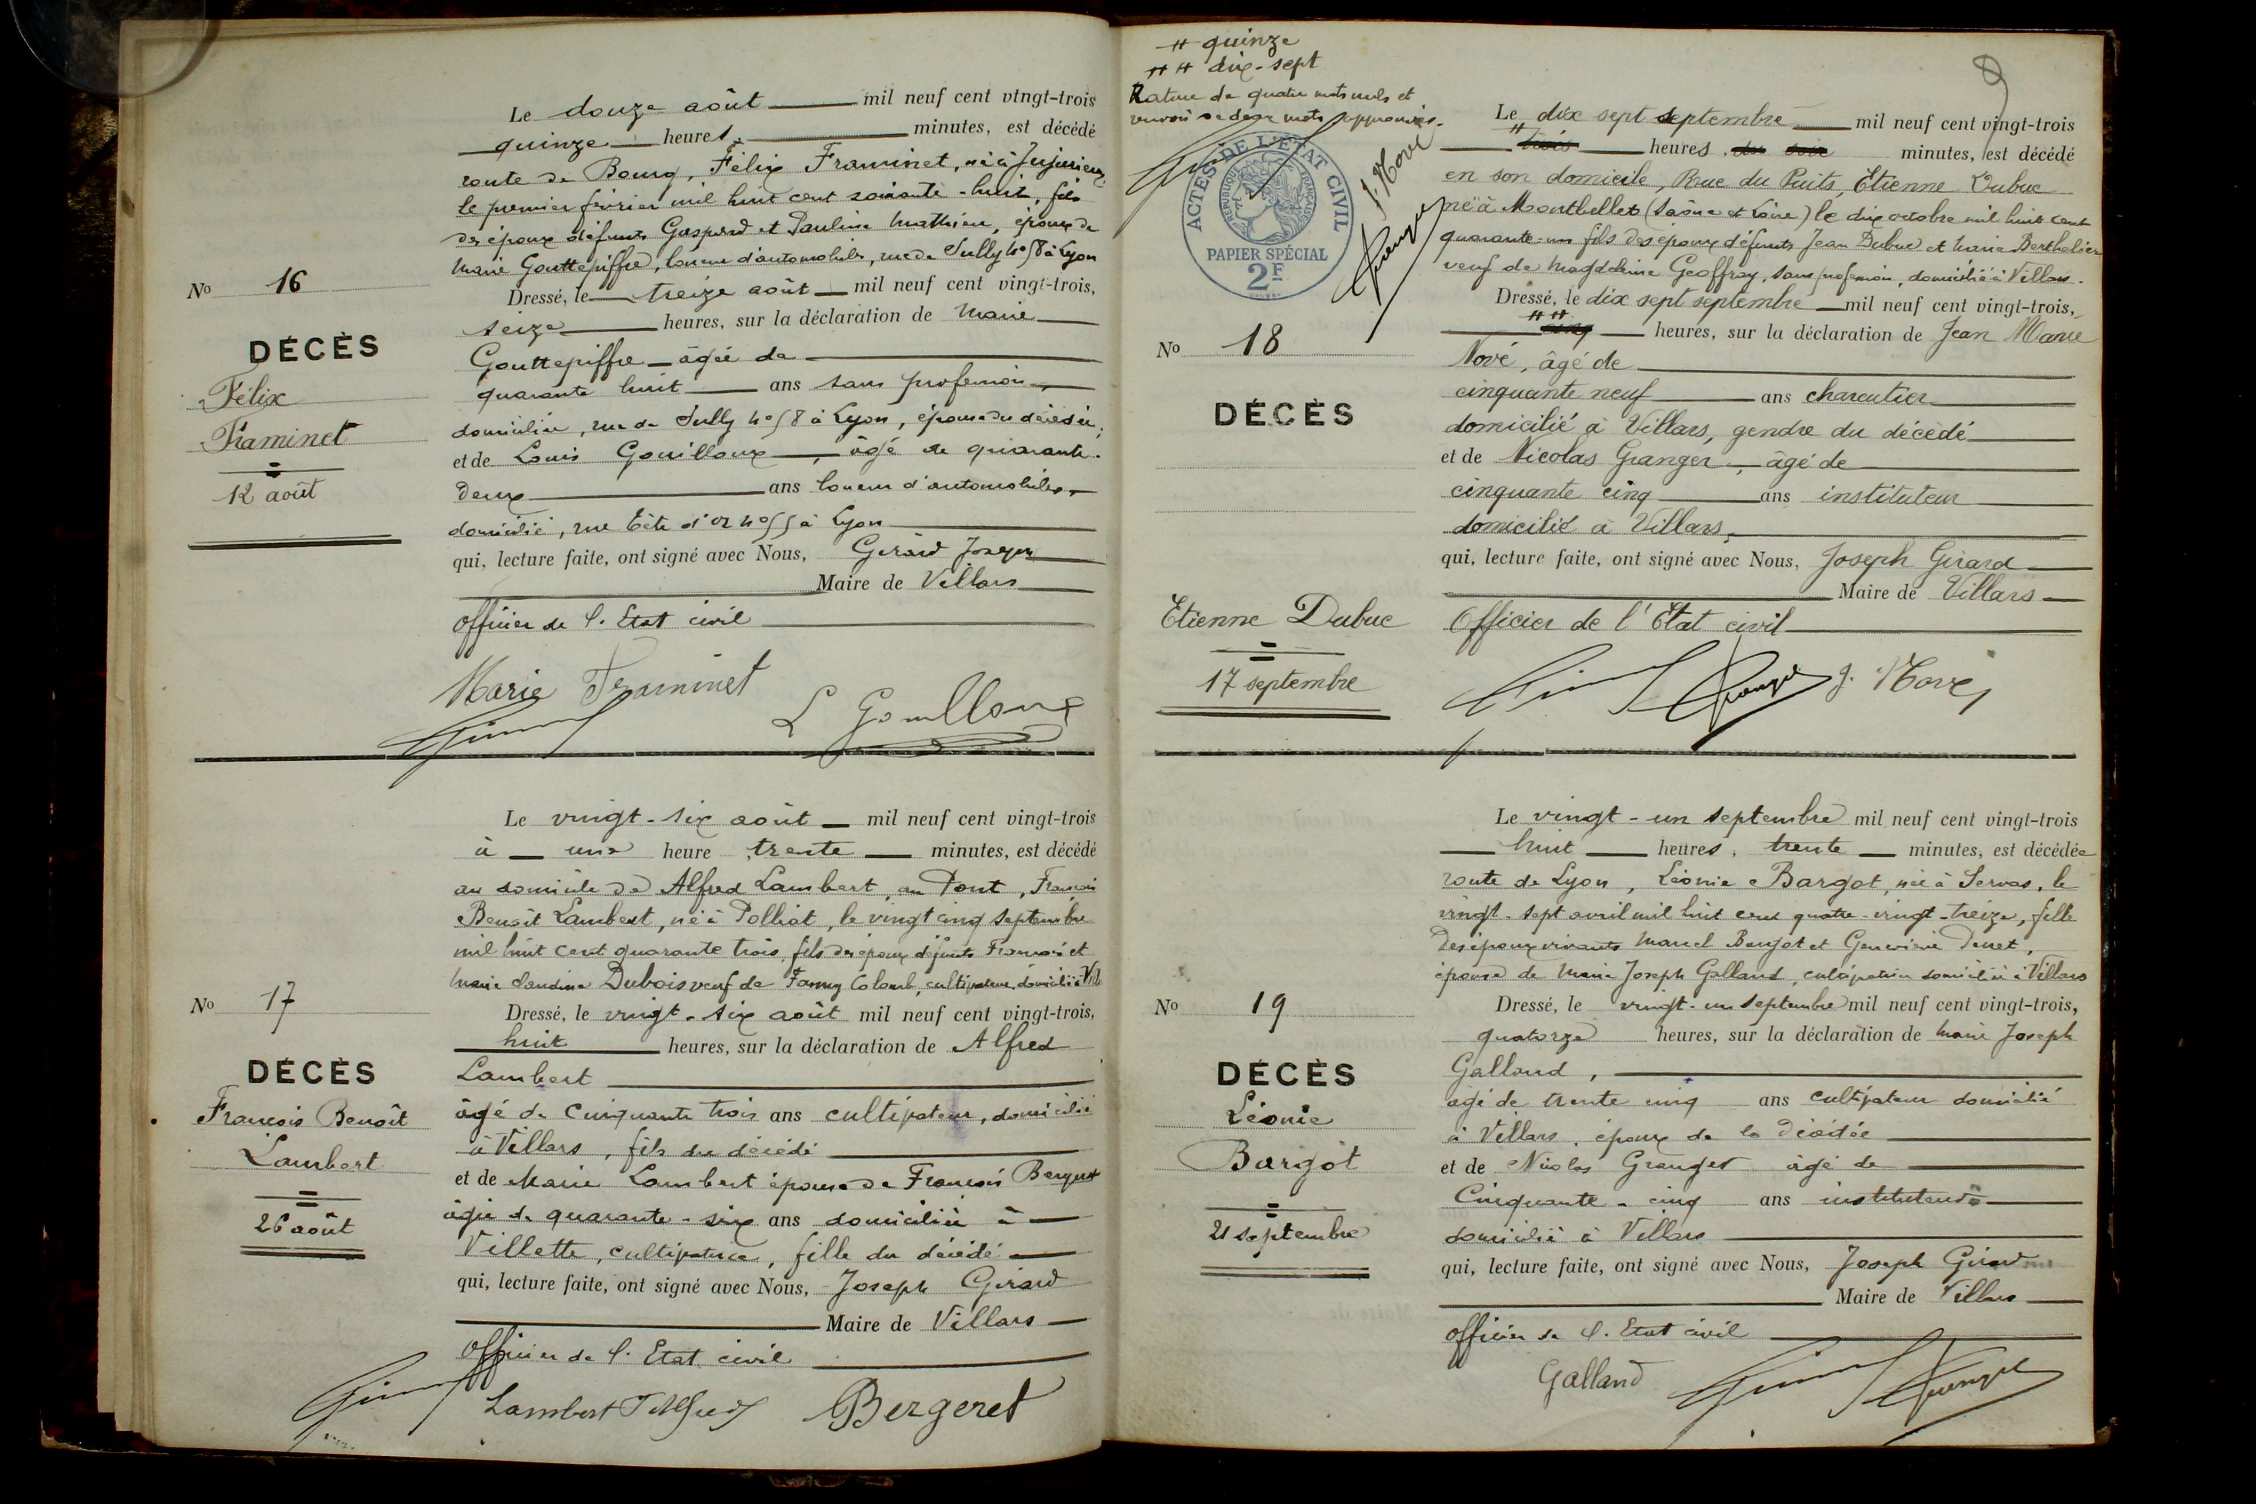 Le douze août mil neuf cent vingt-trois
quinze heures, minutes, est décédé
route de Bourg, Félix Framinet, né à Jujurieux
le premier février mil huit cent soixante-huit, fils
des époux défunts Gaspard et Pauline Mathieu, époux de
Marie Gouttepiffre, loueur d'automobiles, rue de Sully n° 58 à Lyon
No 16
DÉCÈS
Félix
Framinet
12 août
Dressé, le treize août mil neuf cent vingt-trois,
seize heures, sur la déclaration de Marie
Gouttepiffre âgée de
quarante huit ans sans profession,
domiciliée, rue de Sully n° 58 à Lyon, épouse du décédé,
et de Louis Gouilloux, âgé de quarante-
deux ans loueur d'automobiles,
domicilié, rue Tête d'or n° 55 à Lyon
qui, lecture faite, ont signé avec Nous, Girard Joseph
Maire de Villars
officier de l'Etat civil
Marie Framinet
L Gouilloux
Le vingt-six août mil neuf cent vingt-trois
à une heure trente minutes, est décédé
au domicile de Alfred Lambert, au Pont, François
Benoît Lambert, né à Polliat, le vingt cinq septembre
mil huit cent quarante trois, fils des époux défunts François et
Marie Claudine Dubois veuf de Fanny Colomb, cultivateur, domicilié à Vil
No 17
DÉCÈS
François Benoît
Lambert
26 août
Dressé, le vingt-six août mil neuf cent vingt-trois,
huit heures, sur la déclaration de Alfred
Lambert
âgé de cinquante trois ans cultivateur, domicilié
à Villars, fils du décédé
et de Marie Lambert épouse de François Bergeret
âgée de quarante-six ans domiciliée à
Villette, cultivatrice, fille du décédé
qui, lecture faite, ont signé avec Nous, Joseph Girard
Maire de Villars
officier de l'Etat civil
Lambert Alfred
Bergeret
# quinze
# # dix-sept
Rature de quatre mots nuls et
renvoi de deux mots approuvés.
J. Nové
Granger
ACTES DE L'ÉTAT CIVIL
RÉPUBLIQUE FRANÇAISE
PAPIER SPÉCIAL
2F
9
Le dix sept septembre mil neuf cent vingt-trois
# trois heures du soir minutes, est décédé
en son domicile, Rue du Puits, Etienne Dubuc
né à Montbellet (Saône et Loire) le dix octobre mil huit cent
quarante-un fils des époux défunts Jean Dubuc et Marie Berthelier
veuf de Magdeleine Geoffray, sans profession, domicilié à Villars.
No 18
DÉCÈS
Etienne Dubuc
17 septembre
Dressé, le dix sept septembre mil neuf cent vingt-trois,
# # cinq heures, sur la déclaration de Jean Marie
Nové, âgé de
cinquante neuf ans charcutier
domicilié à Villars, gendre du décédé
et de Nicolas Granger, âgé de
cinquante cinq ans instituteur
domicilié à Villars,
qui, lecture faite, ont signé avec Nous, Joseph Girard
Maire de Villars
Officier de l'Etat civil
Granger J. Nové
Le vingt-un septembre mil neuf cent vingt-trois
huit heures, trente minutes, est décédée
route de Lyon, Léonie Bargot, née à Servas, le
vingt-sept avril mil huit cent quatre-vingt-treize, fille
des époux vivants Marcel Bargot et Geneviève
épouse de Marie Joseph Galland, cultivatrice domiciliée à Villars
No 19
DÉCÈS
Léonie
Bargot
21 septembre
Dressé, le vingt-un septembre mil neuf cent vingt-trois,
quatorze heures, sur la déclaration de Marie Joseph
Galland,
âgé de trente cinq ans cultivateur domicilié
à Villars, époux de la décédée
et de Nicolas Granger âgé de
cinquante-cinq ans instituteur
domicilié à Villars
qui, lecture faite, ont signé avec Nous, Joseph Girard
Maire de Villars
officier de l'Etat civil
Galland
Granger